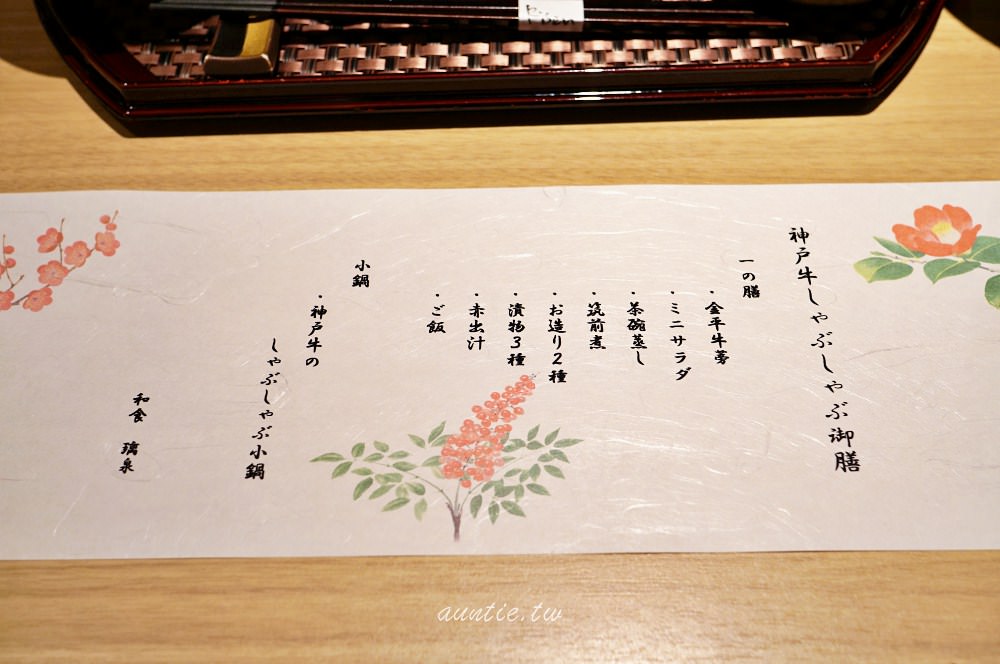 神戸牛しゃぶしゃぶ御膳
一の膳
・金平牛蒡
・ミニサラダ
・茶碗蒸し
・筑前煮
・お造り２種
・漬物３種
・赤出汁
・ご飯
小鍋
・神戸牛の
しゃぶしゃぶ小鍋
和食 璃泉
auntie.tw